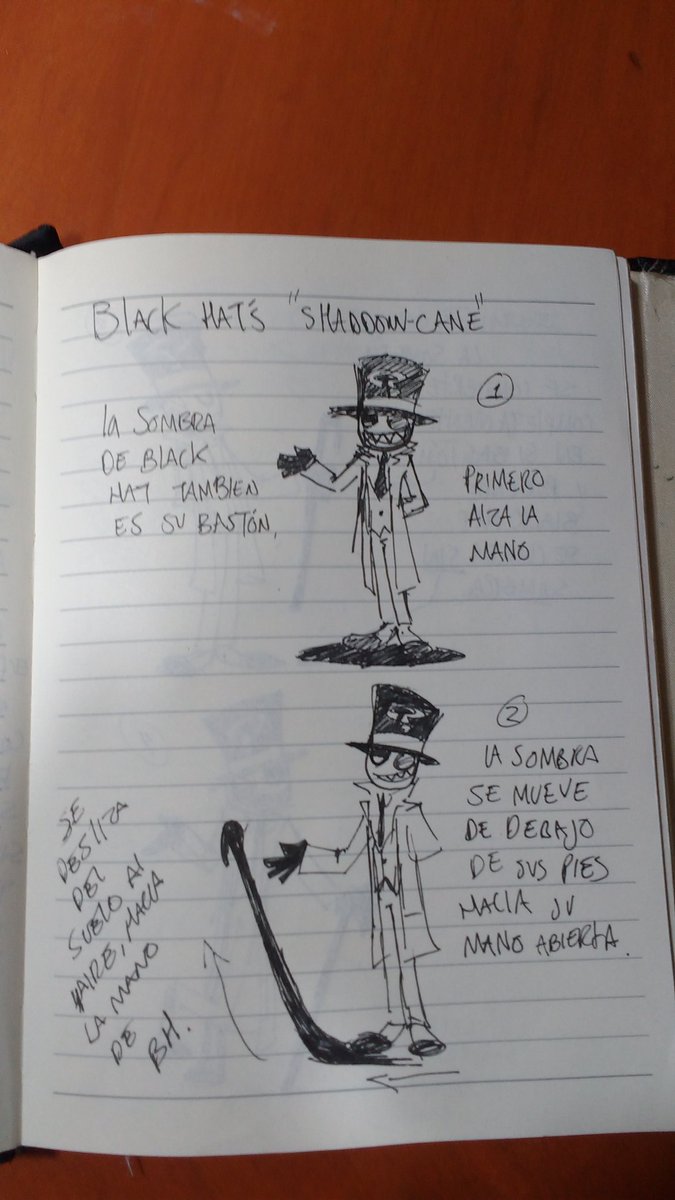 BLACK HAT'S "SHADDOW-CANE"
LA SOMBRA
DE BLACK
HAT TAMBIEN
ES SU BASTÓN,
1
PRIMERO
ALZA LA
MANO
2
LA SOMBRA
SE MUEVE
DE DEBAJO
DE SUS PIES
HACIA SU
MANO ABIERTA.
SE
DESLIZA
DEL
SUELO AL
AIRE, HACIA
LA MANO
DE
BH.